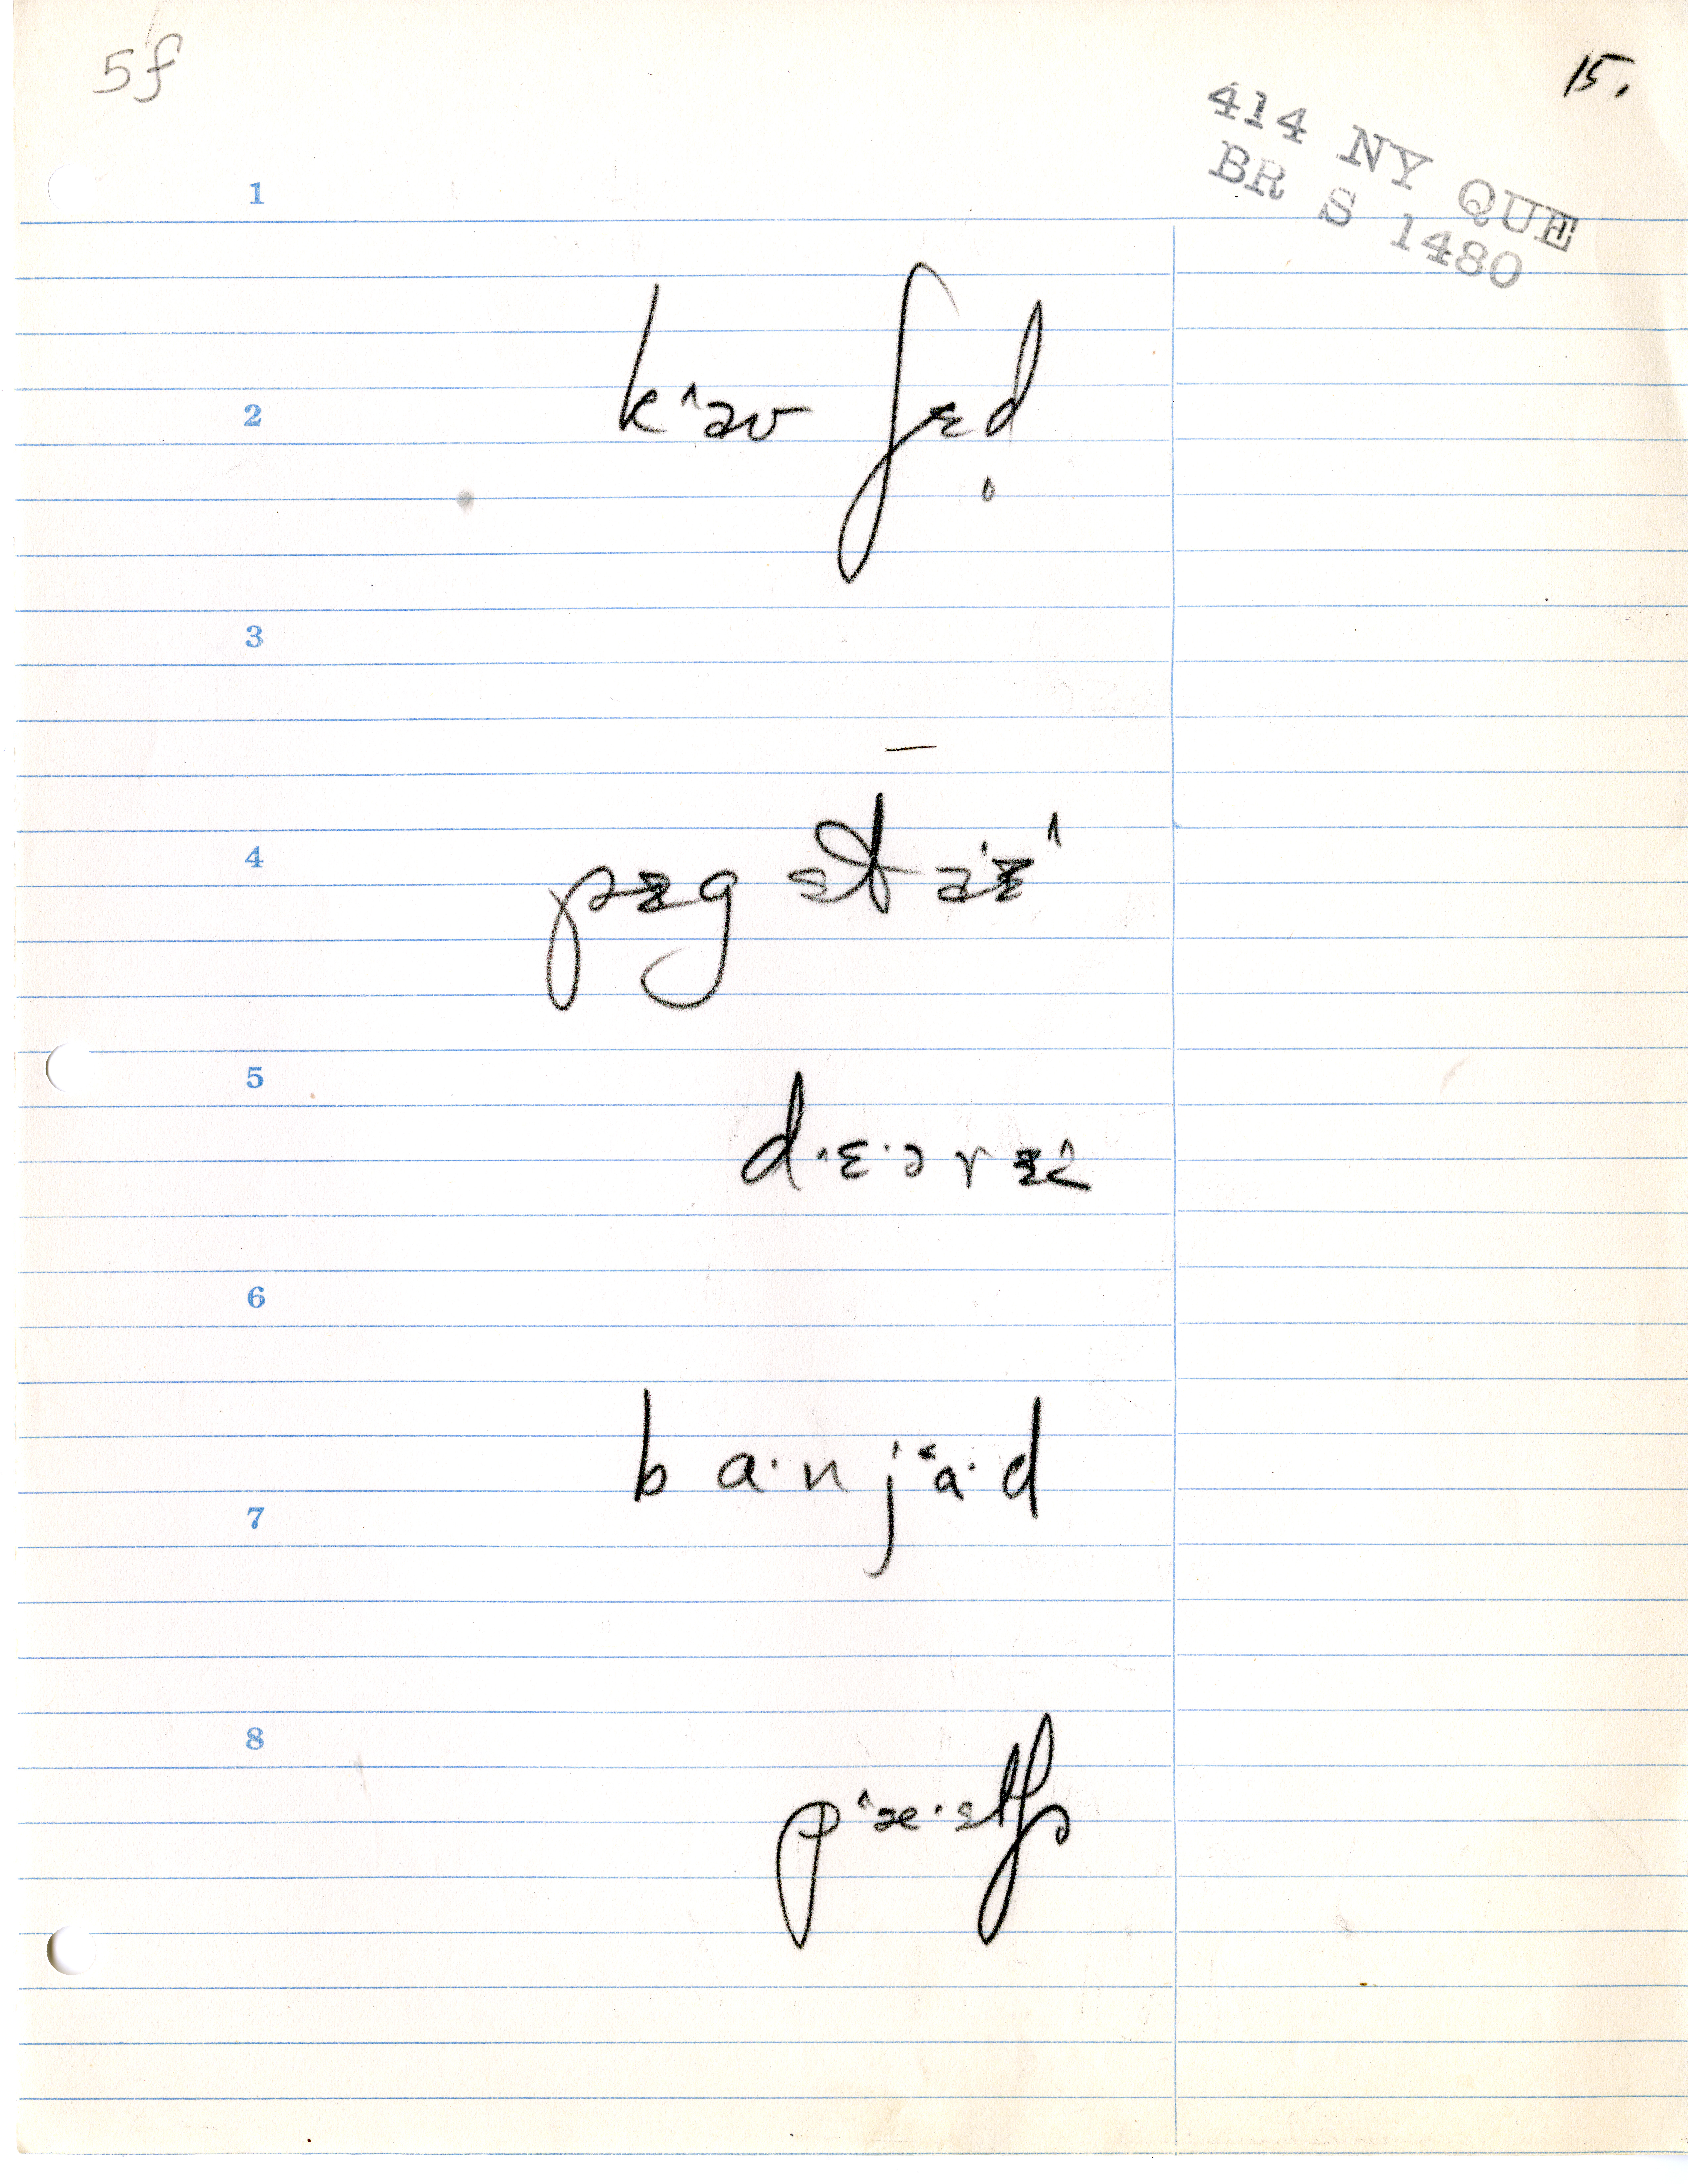 5f
15.
414 NY QUE
BR S 1480
1
2
k^aʊ ʃɛd̥
3
4
pɪg staɪ^
5
d·ɛ·ərɪ
6
ba·nj˂a·d
7
8
p^æ·stʃɚ